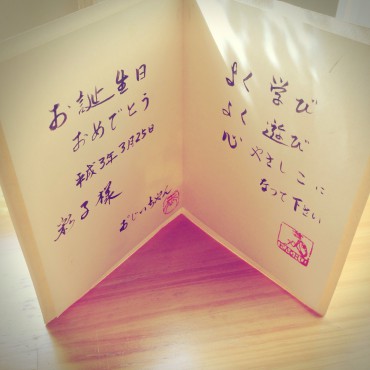 お誕生日
おめでとう
平成3年3月25日
彩子様
おじいちゃん
よく学び
よく遊び
心やさしこに
なって下さい